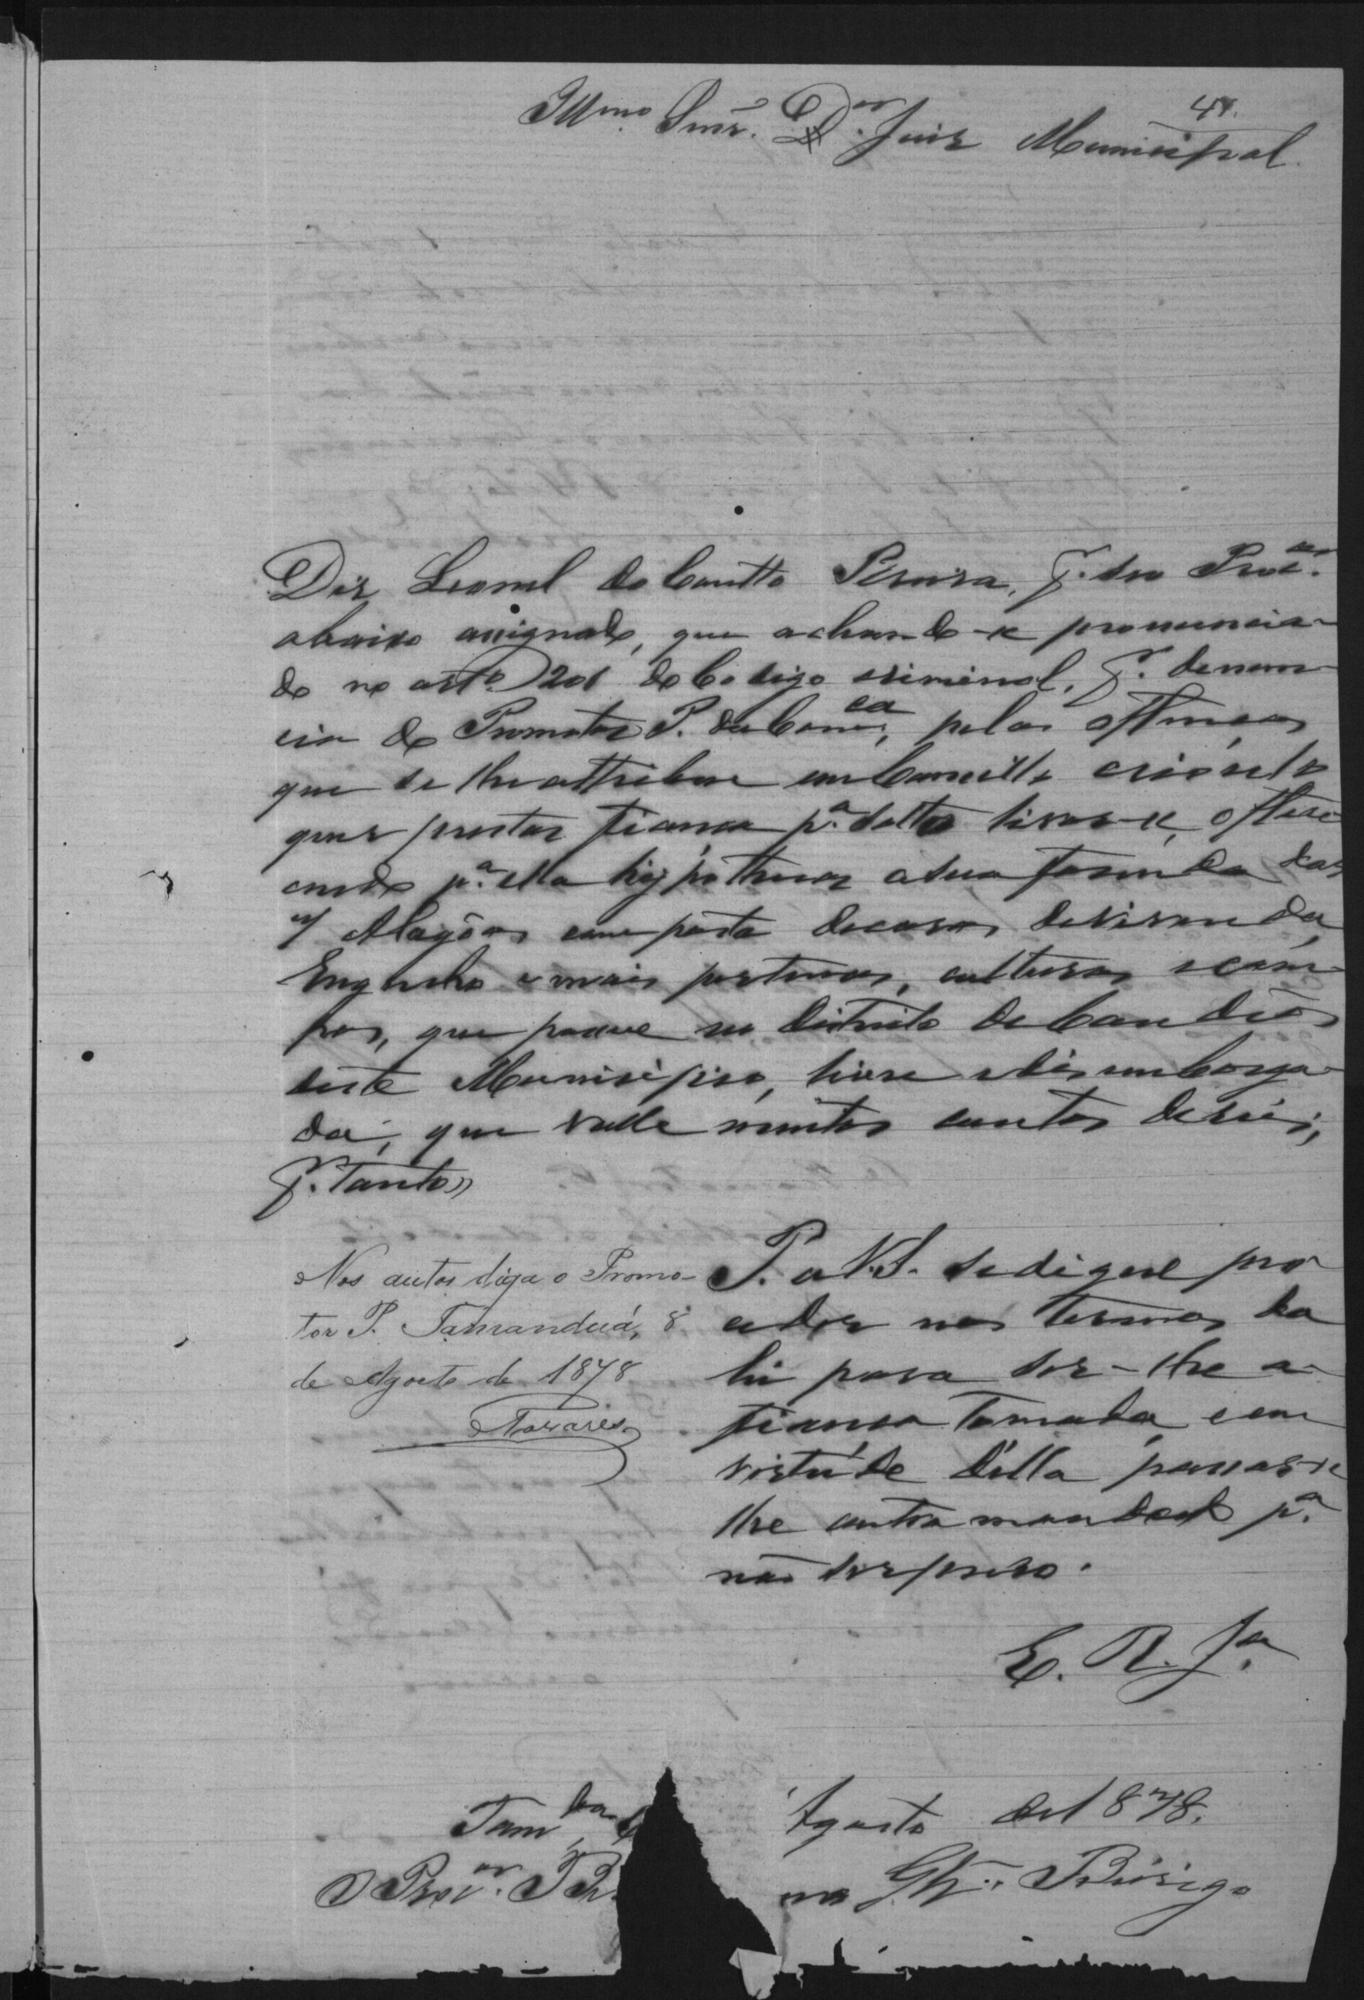 41.
Illmo. Snr. Dor. Juiz Municipal.
Diz Leonel do Coutto Pereira, p. seo Procor.
abaixo assignado, que achando-se pronuncia-
do no arto. 201 do Codigo criminal, p. denun-
cia do Promotor P. da Comca, pelas offensas
que se lhe attribue em Camillo crioulo
quer prestar fiança pa. solto livrar-se, offere-
cendo pa. ella hypothecar a sua fazenda das
Alagôas composta de casas de vivenda,
Engenho e mais pertenças, culturas e cam-
pos, que possue no districto de Candêas
deste Municipio, livre e desembarga-
da, que valle muitos contos de reis;
p. tanto
P. a V.S. se digne pro-
ceder nos termos da
lei para ser-lhe a
fiança tomada, e em
virtude d'ella passar-se
lhe contra mandado pa.
não ser preso.
Nos autos diga o Promo-
tor P. Tamanduá, 8
de Agosto de 1878
Tavares
E. R. Ja.
Tamda. Agosto de 1878.
O Procor.